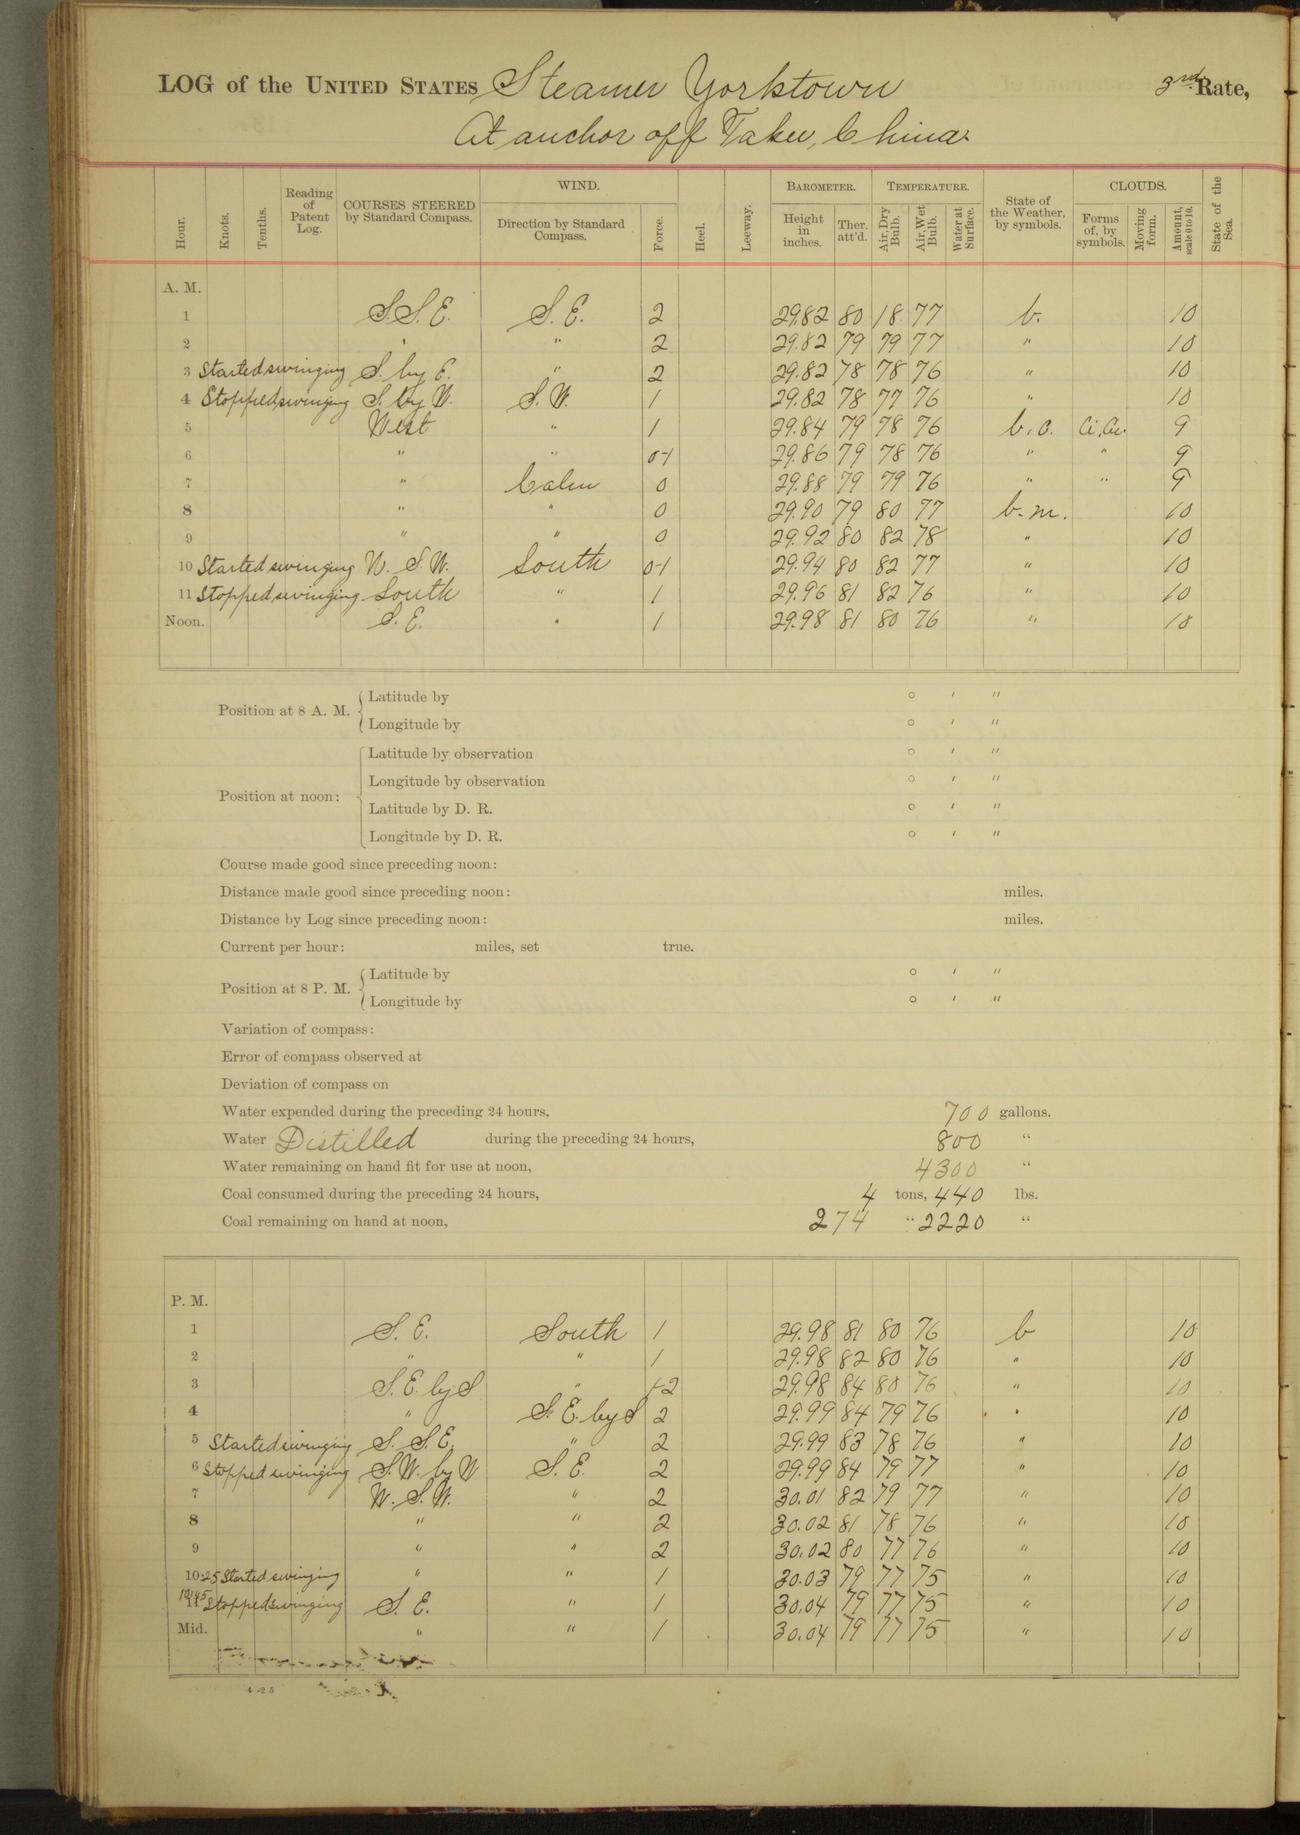 LOG of the UNITED STATES Steamer Yorktown 3rd Rate,
At anchor off Taku, China.
Hour. Knots. Tenths. Reading of Patent Log. COURSES STEERED by Standard Compass. WIND. Direction by Standard Compass. Force. Heel. Leeway. BAROMETER. Height in inches. Ther. att'd. TEMPERATURE. Air, Dry Bulb. Air, Wet Bulb. Water at Surface. State of the Weather, by symbols. CLOUDS. Forms of, by symbols. Moving form. Amount, scale 0 to 10. State of the Sea.
A. M.
1 S.S.E. S.E. 2 29.82 80 18 77 b. 10
2 " " 2 29.82 79 79 77 " 10
3 Started swinging S. by E. " 2 29.82 78 78 76 " 10
4 Stopped swinging S. by W. S.W. 1 29.82 78 77 76 " 10
5 West " 1 29.84 79 78 76 b.c. Ci.Cu. 9
6 " " 0-1 29.86 79 78 76 " " 9
7 " Calm 0 29.88 79 79 76 " " 9
8 " " 0 29.90 79 80 77 b.m. 10
9 " " 0 29.92 80 82 78 " 10
10 Started swinging W.S.W. South 0-1 29.94 80 82 77 " 10
11 Stopped swinging South " 1 29.96 81 82 76 " 10
Noon. S.E. " 1 29.98 81 80 76 " 10
Position at 8 A. M. Latitude by ° ′ ″
Longitude by ° ′ ″
Position at noon: Latitude by observation ° ′ ″
Longitude by observation ° ′ ″
Latitude by D. R. ° ′ ″
Longitude by D. R. ° ′ ″
Course made good since preceding noon:
Distance made good since preceding noon: miles.
Distance by Log since preceding noon: miles.
Current per hour: miles, set true.
Position at 8 P. M. Latitude by ° ′ ″
Longitude by ° ′ ″
Variation of compass:
Error of compass observed at
Deviation of compass on
Water expended during the preceding 24 hours, 700 gallons.
Water Distilled during the preceding 24 hours, 800 "
Water remaining on hand fit for use at noon, 4300 "
Coal consumed during the preceding 24 hours, 4 tons, 440 lbs.
Coal remaining on hand at noon, 274 " 2220 "
P. M.
1 S.E. South 1 29.98 81 80 76 b 10
2 " " 1 29.98 82 80 76 " 10
3 S.E. by S " 1-2 29.98 84 80 76 " 10
4 " S.E. by S 2 29.99 84 79 76 " 10
5 Started swinging S.S.E. " 2 29.99 83 78 76 " 10
6 Stopped swinging S.W. by W S.E. 2 29.99 84 79 77 " 10
7 W.S.W. " 2 30.01 82 79 77 " 10
8 " " 2 30.02 81 78 76 " 10
9 " " 2 30.02 80 77 76 " 10
10:25 Started swinging " " 1 30.03 79 77 75 " 10
10:45 11 Stopped swinging S.E. " 1 30.04 79 77 75 " 10
Mid. " " 1 30.04 79 77 75 " 10
4-25